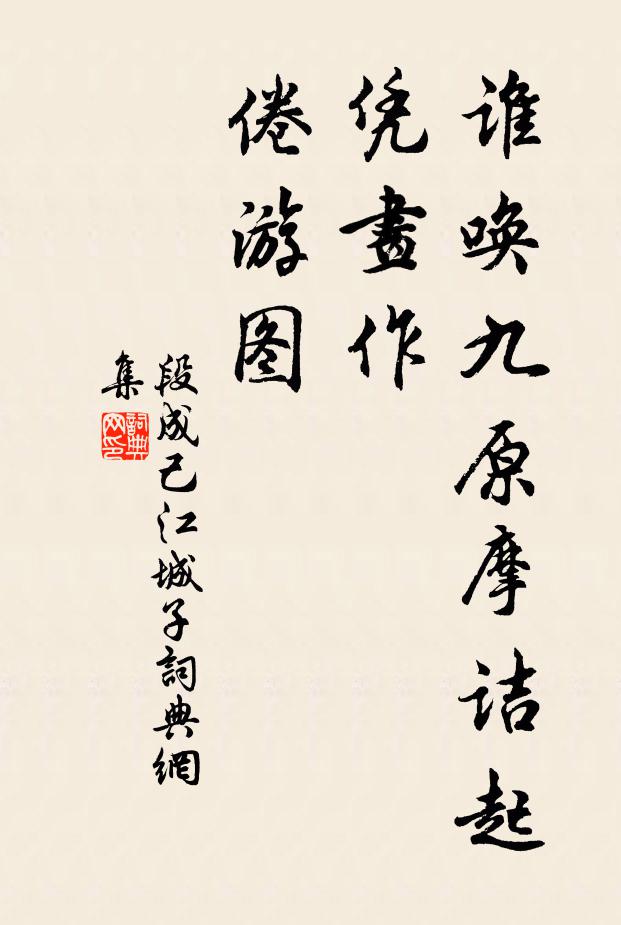 谁唤九原摩诘起
凭畫作
倦游图
段成己江城子詞典網
集
詞典
网印